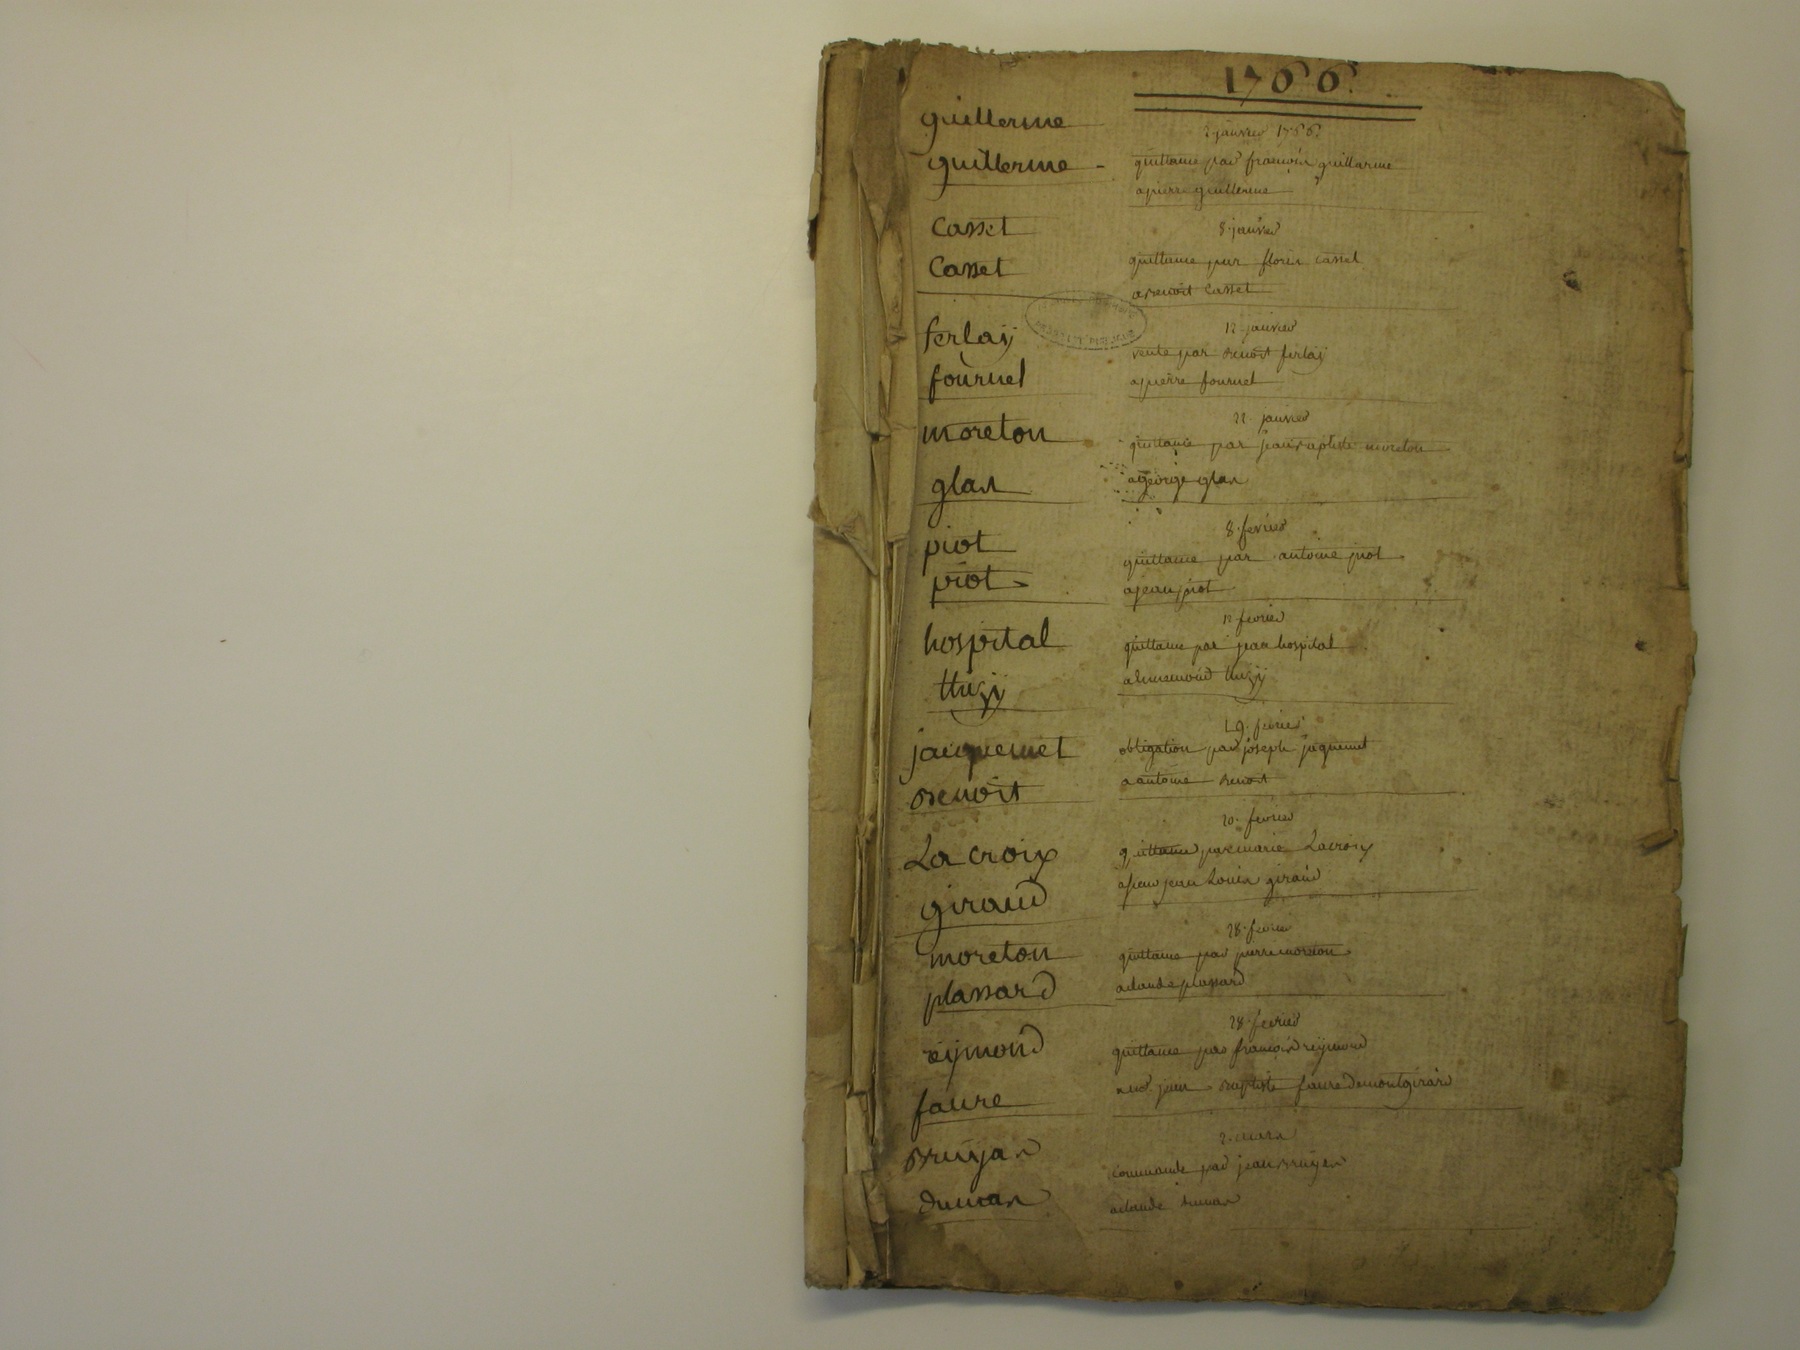 1766
guillerme
2 janvier 1766
guillerme
quittance par francois guillerme
a pierre guillerme
Casset
8 janvier
Casset
quittance par floris casset
a benoit Casset
ferlaÿ
12 janvier
vente par benoit ferlaÿ
fournel
a pierre fournel
moreton
22 janvier
quittance par jean baptiste moreton
glas
a george glas
piot
8 fevrier
quittance par antoine piot
piot
a jean piot
hospital
12 fevrier
quittance par jean hospital
thizÿ
thizÿ
jacquemet
19 fevrier
obligation par joseph jaquemet
benoit
a antoine benoit
La croix
20 fevrier
quittance par marie Lacroix
giraud
jean Louis giraud
moreton
28 fevrier
quittance par pierre moreton
plassard
a claude plassard
reÿmond
28 fevrier
quittance par francois reÿmond
faure
jean baptiste faure de montgirard
bruÿas
2 mars
commande par jean bruÿas
dumas
a claude dumas